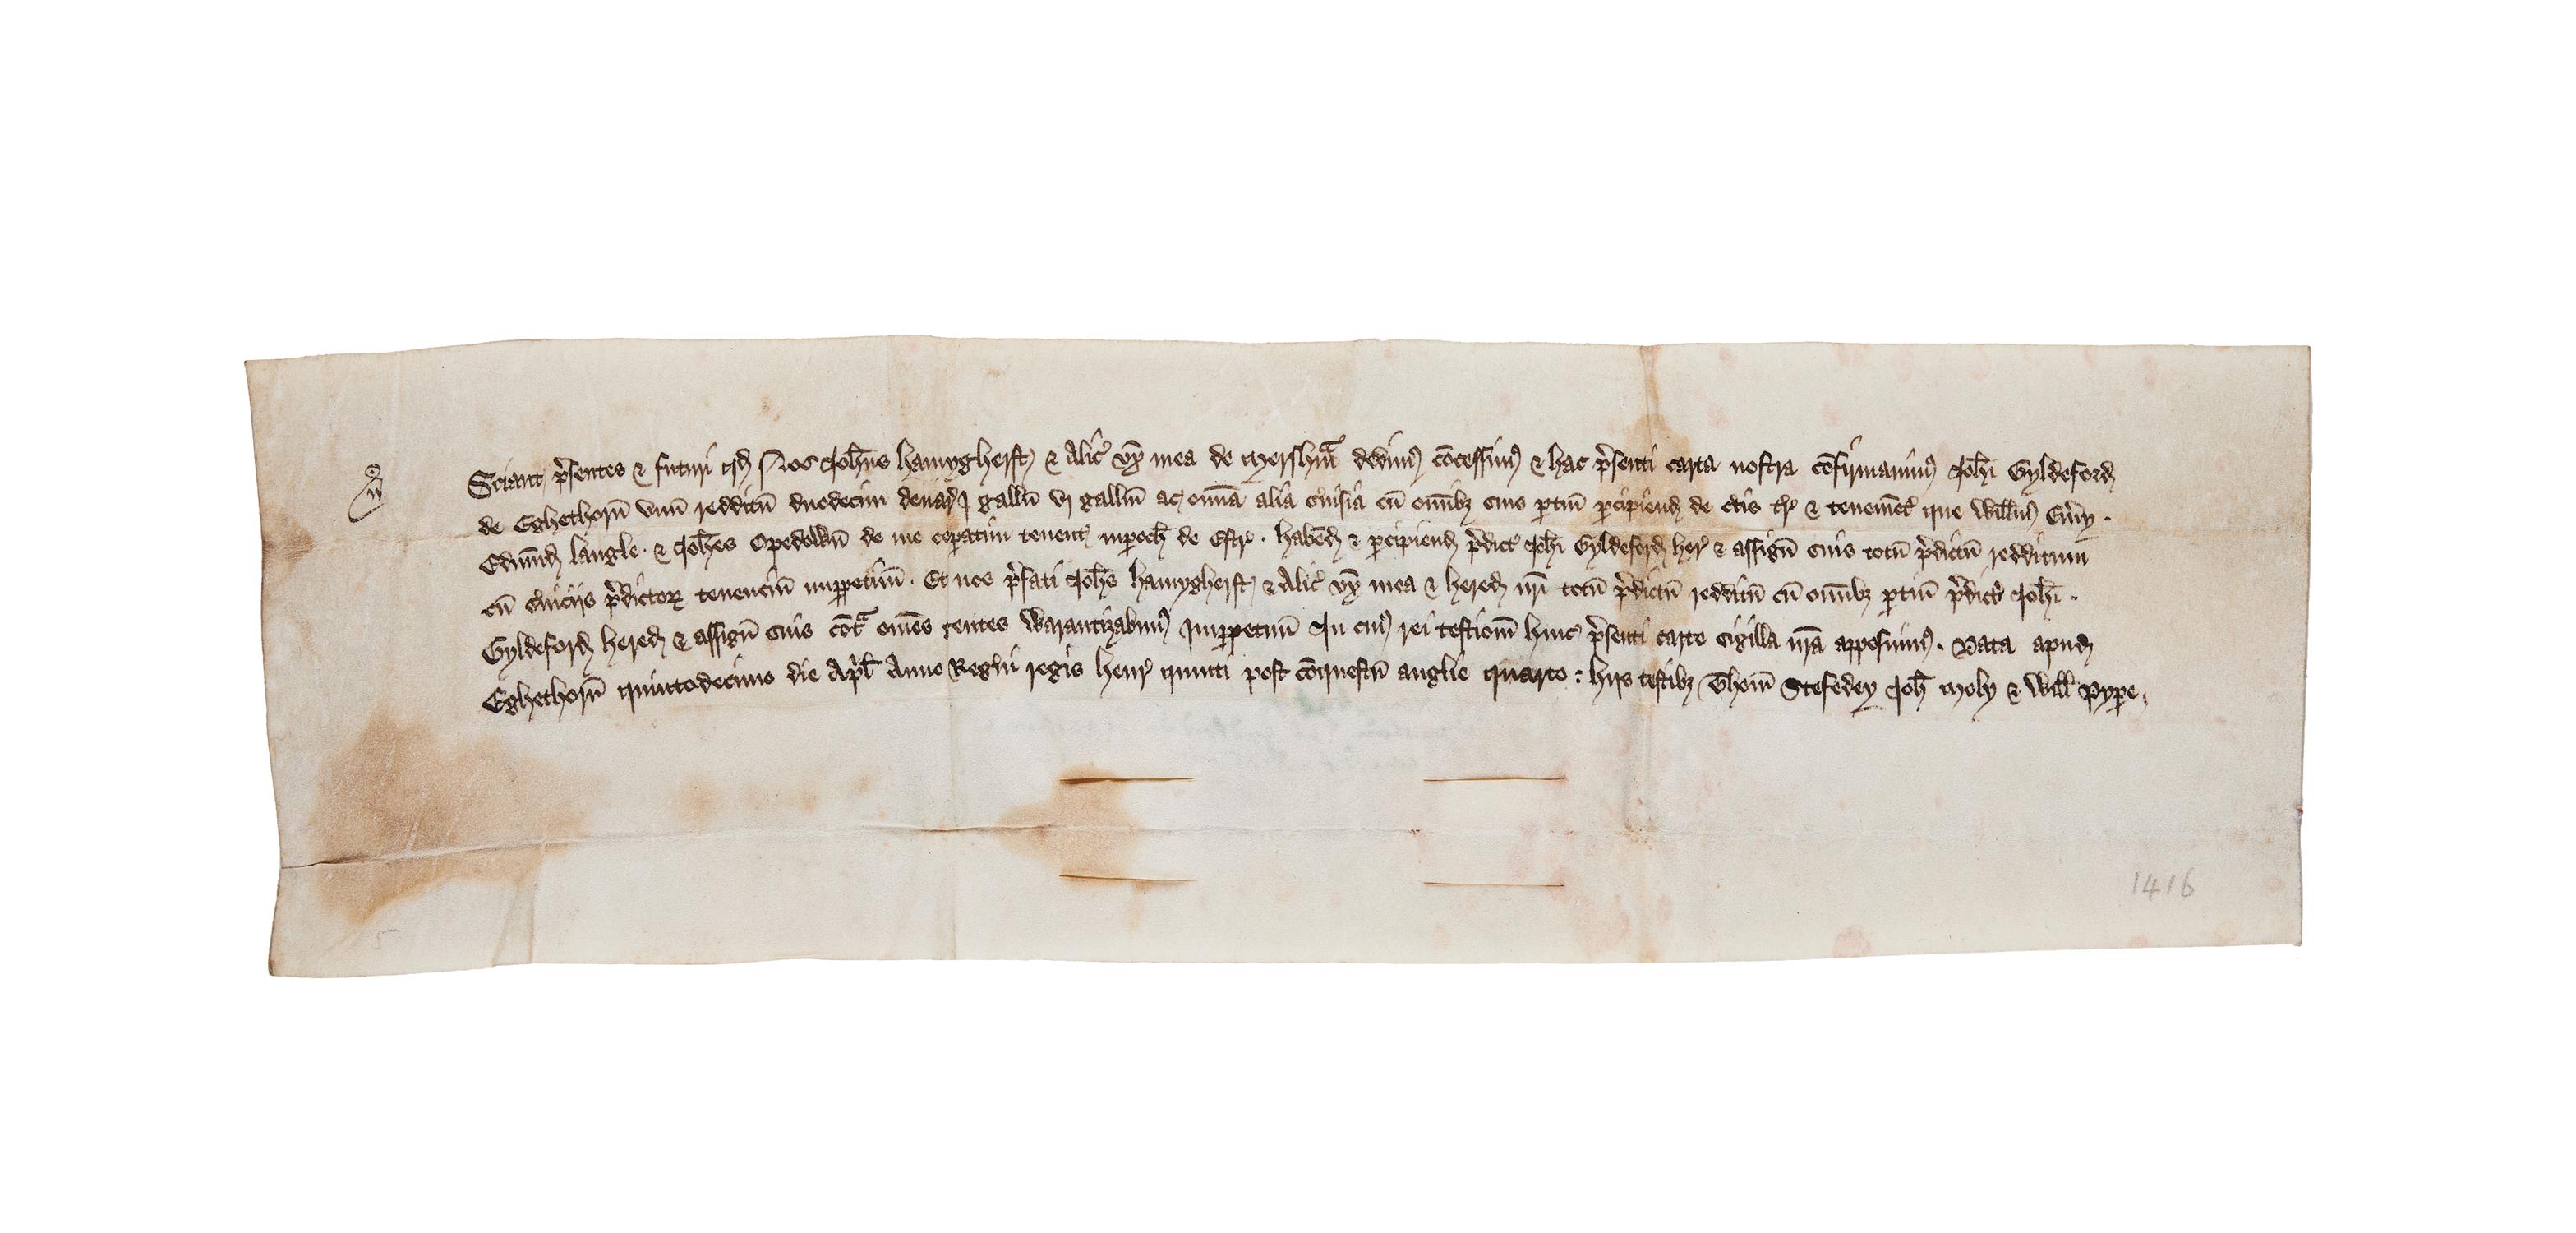 Sciant p̄sentes & futuri qd Nos Joh̄nes hamygherst & Alic̄ vx̄ mea de Mershm̄ dedim⁹ cōcessim⁹ & hac p̄senti carta nostra cōfirmauim⁹ Joh̄i Gyldeford
de Eghethorn̄ vnū redditū duodecim denar̄ j gallū vj gallin̄ ac om̄ia alia s̄uisia cū om̄ibȝ suis ptin̄ pcipiend de t̄ris & tenemēt̄ que Will̄m⁹
Edmūd langle . & Joh̄es de me sepatim tenent in poch̄ de Estr̄ . habēd & pcipiend p̄dict̄ Joh̄i Gyldeford her̄ & assign̄ suis totū p̄dictū redditum
cū s̄uiciis p̄dictoꝝ tenenciū imppetuū . Et nos p̄fati Joh̄s hamygherst & Alic̄ vx̄ mea & hered nr̄i totū p̄dictū redditū cū om̄ibȝ ptin̄ p̄dict̄ Joh̄i .
Gyldeford hered & assign̄ suis cōtᵃ om̄es gentes Warantizabim⁹ Imppetuū In cui⁹ rei testiom̄ huic p̄senti carte sigilla nr̄a apposuim⁹ . Data apud
Eghethorn̄ quintodecimo die Ap̄l Anno Regni regis henr̄ quinti post cōquestū anglie quarto : hijs testibȝ Thom̄ Stefedey Joh̄ Moly & Will̄ Pype .
1416
5